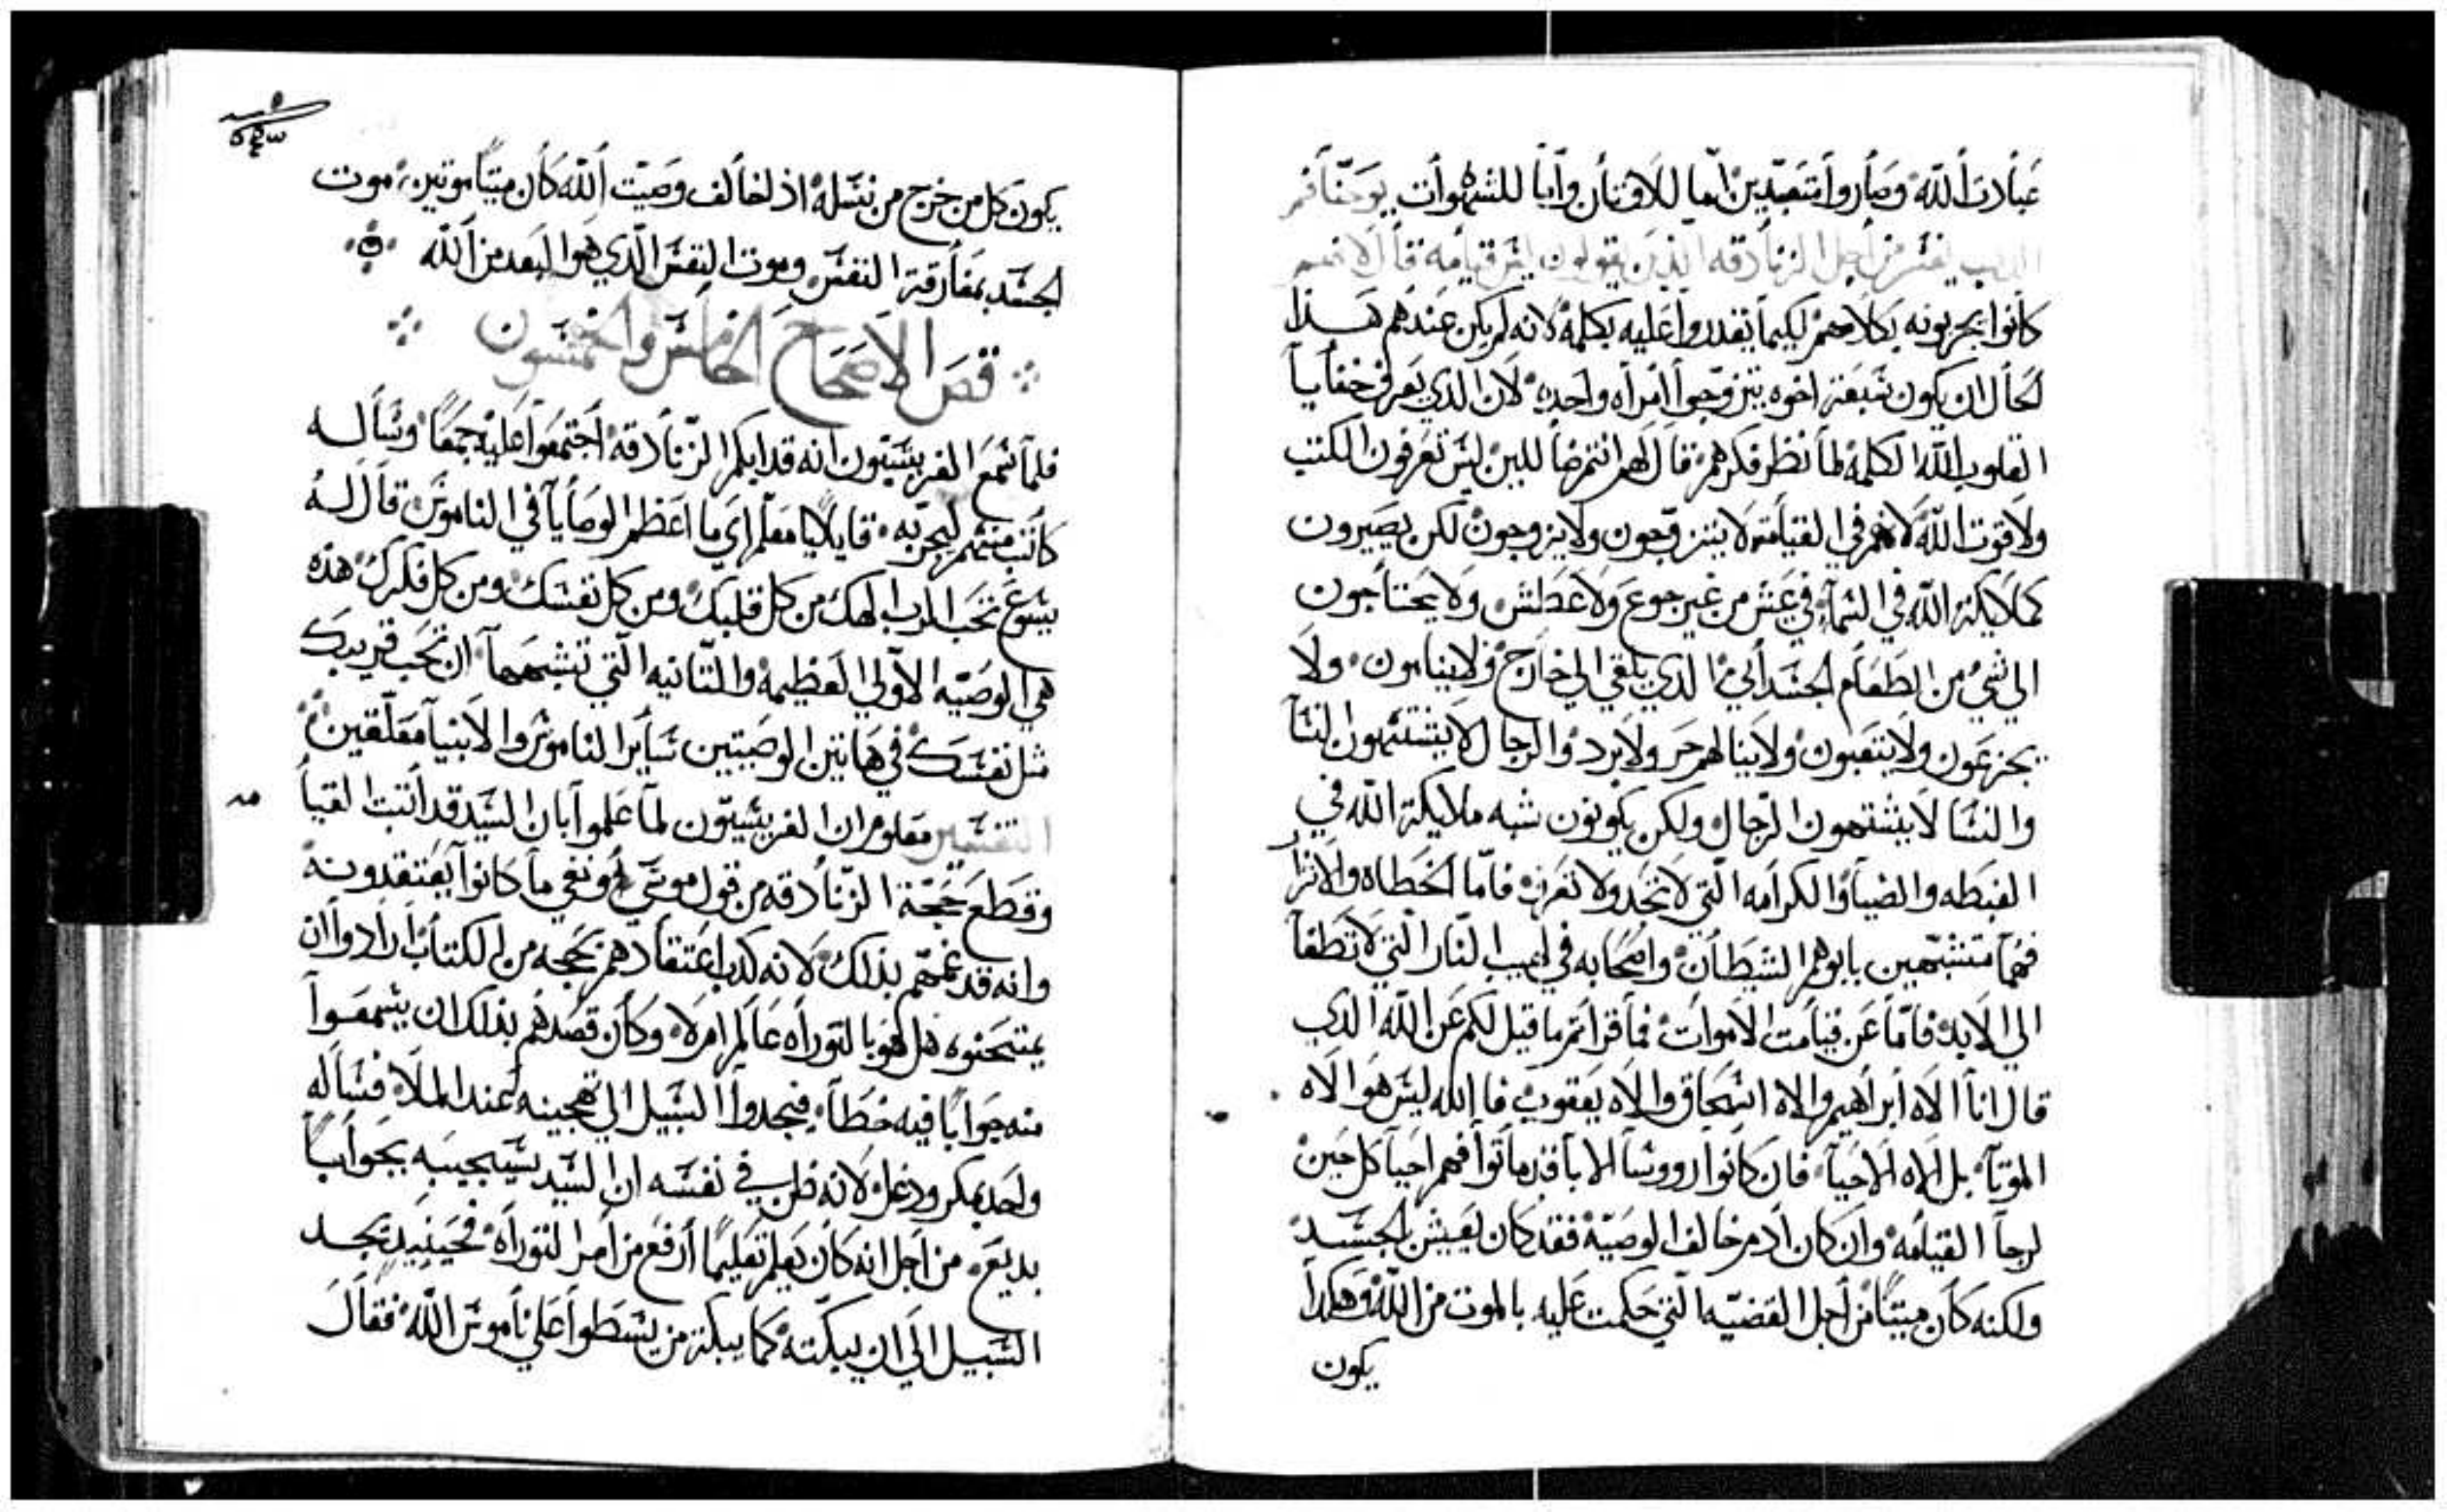 عبادت الله وصاروا متعبدين اما للاوثان واما للشهوات يوحنا فم
الذهب يفسر من اجل الزنادقه الذين يقولون ليس قيامه قال لانهم
كانوا يجربونه بكلامهم لكيما يقدروا عليه بكلمة لانه لم يكن عندهم هذا
الحال ان يكون سبعة اخوه يتزوجوا امراه واحده لان الذي يعرف خفايا
القلوب الله الكلمة لما نظر فكرهم قال لهم انتم ضالين ليس تعرفون الكتب
ولا قوت الله لانهم في القيامة لا يتزوجون ولا يزوجون لكن يصيرون
كملايكة الله في السماء في عيش من غير جوع ولا عطش ولا يحتاجون
الي شي من الطعام الجسداني الذي يلقي الي خارج ولا ينامون ولا
يجزعون ولا يتعبون ولا ينالهم حر ولا برد والرجال لا يشتهون النسا
والنسا لا يشتهون الرجال ولكن يكونون شبه ملايكة الله في
الغبطه والضيا والكرامه التي لا تحد ولا تعرف فاما الخطاه والاشرار
فهم متشبهين بابوهم الشيطان واصحابه في لهيب النار التي لا تطفا
الي الابد فاما عن قيامت الاموات فما قراتم ما قيل لكم عن الله الذي
قال انا الاه ابراهيم والاه اسحاق والاه يعقوب فالله ليس هو الاه
الموتا بل الاه الاحيا فان كانوا رووسا الابا قد ماتوا فهم احيا كل حين
لرجا القيامه وان كان ادم خالف الوصية فقد كان يعيش بالجسد
ولكنه كان ميتا من اجل القضيه التي حكمت عليه بالموت من الله وهكدا
يكون
يكون كل من خرج من نسله اذ لخالف وصيت الله كان ميتا موتين موت
الجسد بمفارقة النفس وموت النفس الذي هو البعد من الله
قص الاصحاح الخامس والخمسون
فلما سمع الفريسيون انه قد ابكم الزنادقه اجتمعوا عليه جمعا وساله
كاتب منهم ليجربه قايلا يا معلم اي ما اعظم الوصايا في الناموس قال له
يسوع تحب الرب الهك من كل قلبك ومن كل نفسك ومن كل فكرك هذه
هي الوصيه الاولي العظيمه والتانيه التي تشبهها ان تحب قريبك
مثل نفسك في هاتين الوصيتين ساير الناموس والانبيا معلقين
التفسير معلوم ان الفريسيون لما علموا بان السيد قد اتبت القيا
وقطع حجة الزنادقه من قول موسي ونفي ما كانوا يعتقدونه
وانه قد غمهم بذلك لانه كذب اعتقادهم بحجه من الكتاب ارادوا ان
يمتحنوه هل هو بالتوراه عالم ام لا وكان قصدهم بذلك ان يسمعوا
منه جوابا فيه خطا فيجدوا السبيل الي تهجينه عند الملا فساله
واحد بمكر ودغل لانه ظن في نفسه ان السيد سيجيبه بجوابا
بديع من اجل انه كان يعلم تعليما ارفع من امر التوراه فحينيد يجد
السبيل الي ان يبكته كما يبكت من يسطوا علي ناموس الله فقال